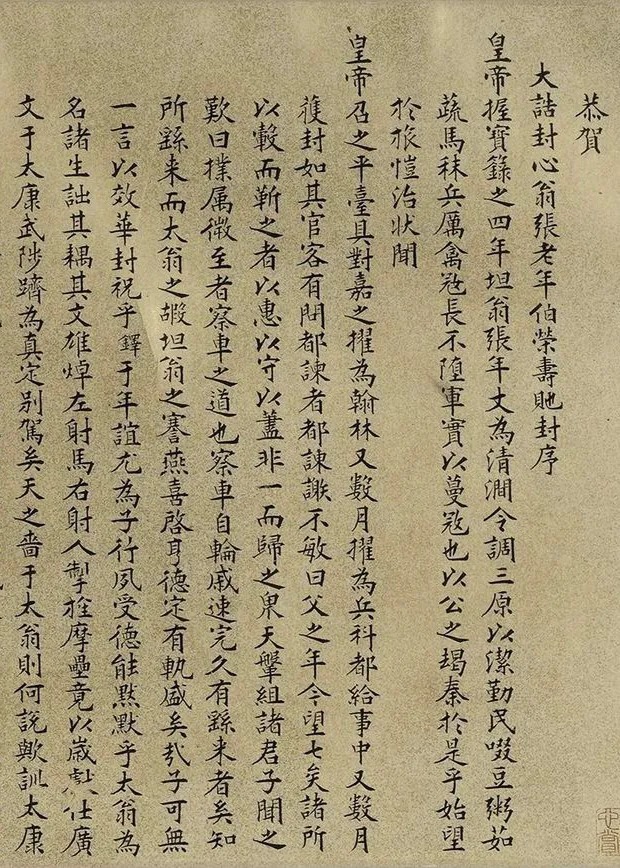 恭賀
大誥封心翁張老年伯榮壽貤封序
皇帝握寶錄之四年坦翁張年丈為清澗令調三原以潔勤民啜豆粥茹
蔬馬秣兵厲禽冦長不墮軍實以蔓冦也以公之堨秦於是乎始望
於旅愷治狀聞
皇帝召之平臺具對嘉之擢為翰林又數月擢為兵科都給事中又數月
獲封如其官客有問都諫者都諫謝不敏曰父之年今望七矣諸所
以轂而靳之者以惠以守以藎非一而歸之果天鞶組諸君子聞之
歎曰樸属微至者察車之道也察車自輪戚速完久有繇来者矣知
所繇来而太翁之嘏坦翁之謇燕喜啓亨德定有軌盛矣哉子可無
一言以效華封祝乎鐸于年誼尤為子行夙受德能黙默乎太翁為
名諸生詘其耦其文雄焯左射馬右射人掣拴摩壘竟以歲獻仕廣
文于太康武陟躋為真定别駕矣天之嗇于太翁則何說歟訓太康